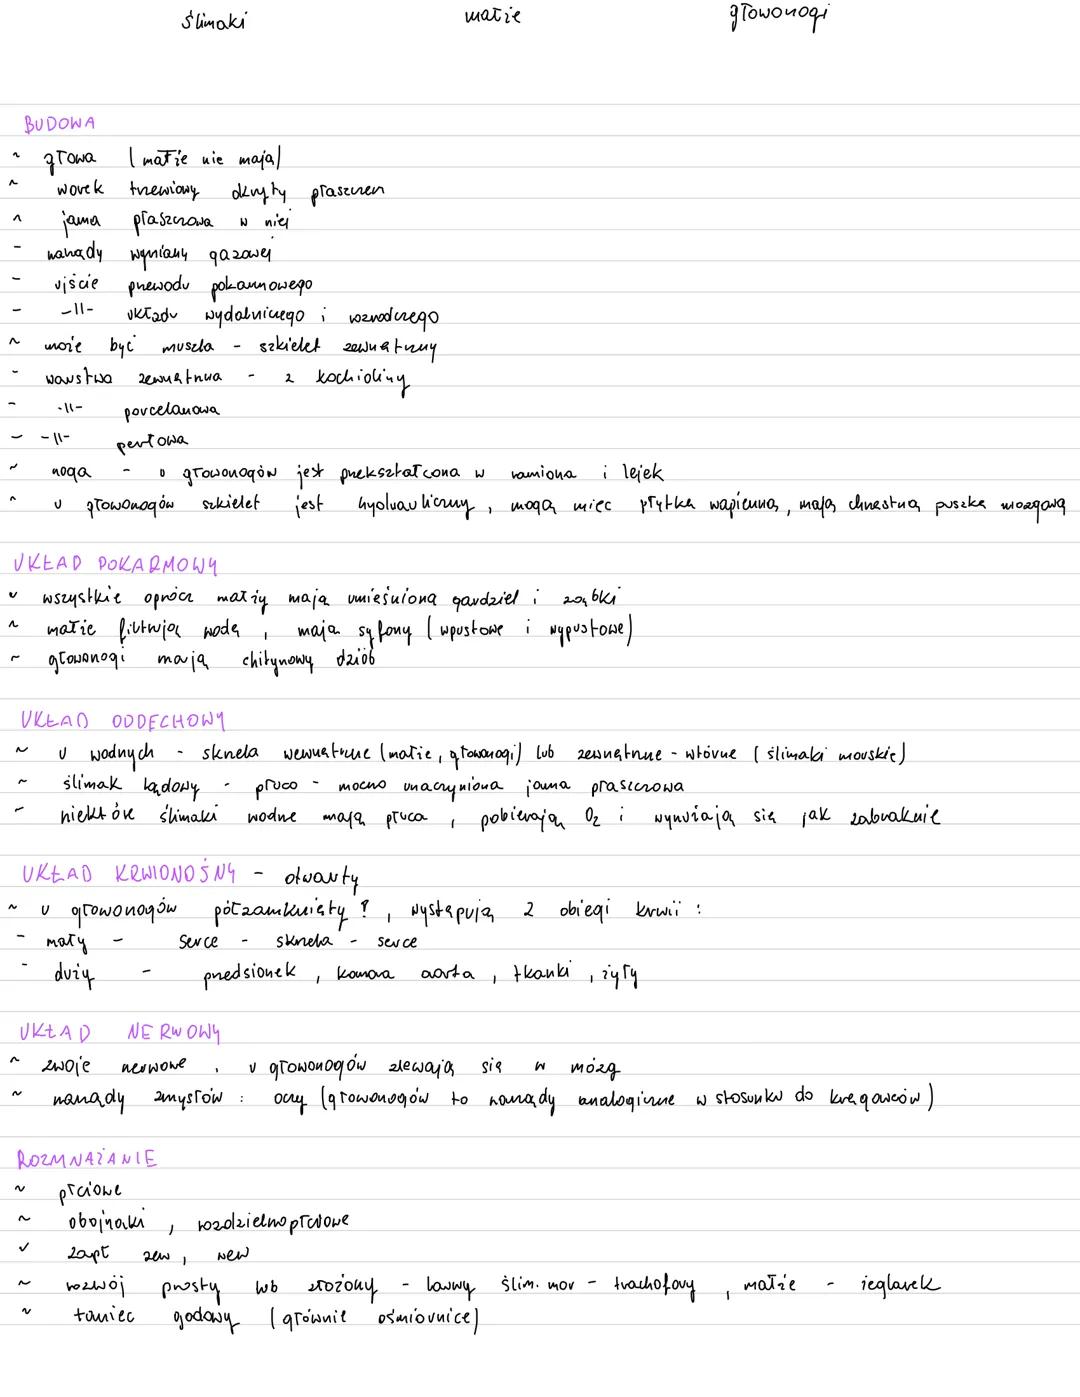 ślimaki małże głowonogi
BUDOWA
~ głowa (małże nie mają)
~ worek trzewiowy okryty płaszczem
~ jama płaszczowa w niej
- narządy wymiany gazowej
- ujście przewodu pokarmowego
- -||- układu wydalniczego i rozrodczego
~ może być muszla - szkielet zewnętrzny
- warstwa zewnętrzna - z konchioliny
- -||- porcelanowa
- -||- perłowa
~ noga - u głowonogów jest przekształcona w ramiona i lejek
~ u głowonogów szkielet jest hydrauliczny, mogą mieć płytkę wapienną, mają chrzęstną puszkę mózgową
UKŁAD POKARMOWY
~ wszystkie oprócz małży mają umięśnioną gardziel i ząbki
~ małże filtrują wodę, mają syfony (wpustowe i wypustowe)
~ głowonogi mają chitynowy dziób
UKŁAD ODDECHOWY
~ u wodnych - skrzela wewnętrzne (małże, głowonogi) lub zewnętrzne - wtórne (ślimaki morskie)
~ ślimak lądowy - płuco - mocno unaczyniona jama płaszczowa
- niektóre ślimaki wodne mają płuca, pobierają O2 i wynurzają się jak zabraknie
UKŁAD KRWIONOŚNY - otwarty
~ u głowonogów półzamknięty?, występują 2 obiegi krwii:
- mały - serce - skrzela - serce
- duży - przedsionek, komora aorta, tkanki, żyły
UKŁAD NERWOWY
~ zwoje nerwowe, u głowonogów zlewają się w mózg
~ narządy zmysłów: oczy (głowonogów to narządy analogiczne w stosunku do kręgowców)
ROZMNAŻANIE
~ płciowe
~ obojnaki, rozdzielnopłciowe
~ zapł zew, wew
~ rozwój prosty lub złożony - larwy ślim. mor - trochofory, małże - żeglarek
~ taniec godowy (głównie ośmiornice)